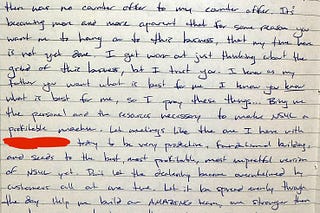 there was no counter offer to my counter offer. It's
becoming more and more apparent that for some reason you
want me to hang on to this business, that my time here
is not yet done. I get worn out just thinking about the
grind of this business, but I trust you. I know as my
father you want what is best for me. I know you know
what is best for me, so I pray these things... Bring me
the personal and the resources necessary to make NSHL a
profitable machine. Let meetings like the one I have with
today to be very productive, foundational building,
and seeds to the best, most profitable, most impactful version
of NSHL yet. Don't let the dealership become overwhelmed by
customers all at one time. Let it be spread evenly through
the day. Help me build an AMAZING team, one stronger than